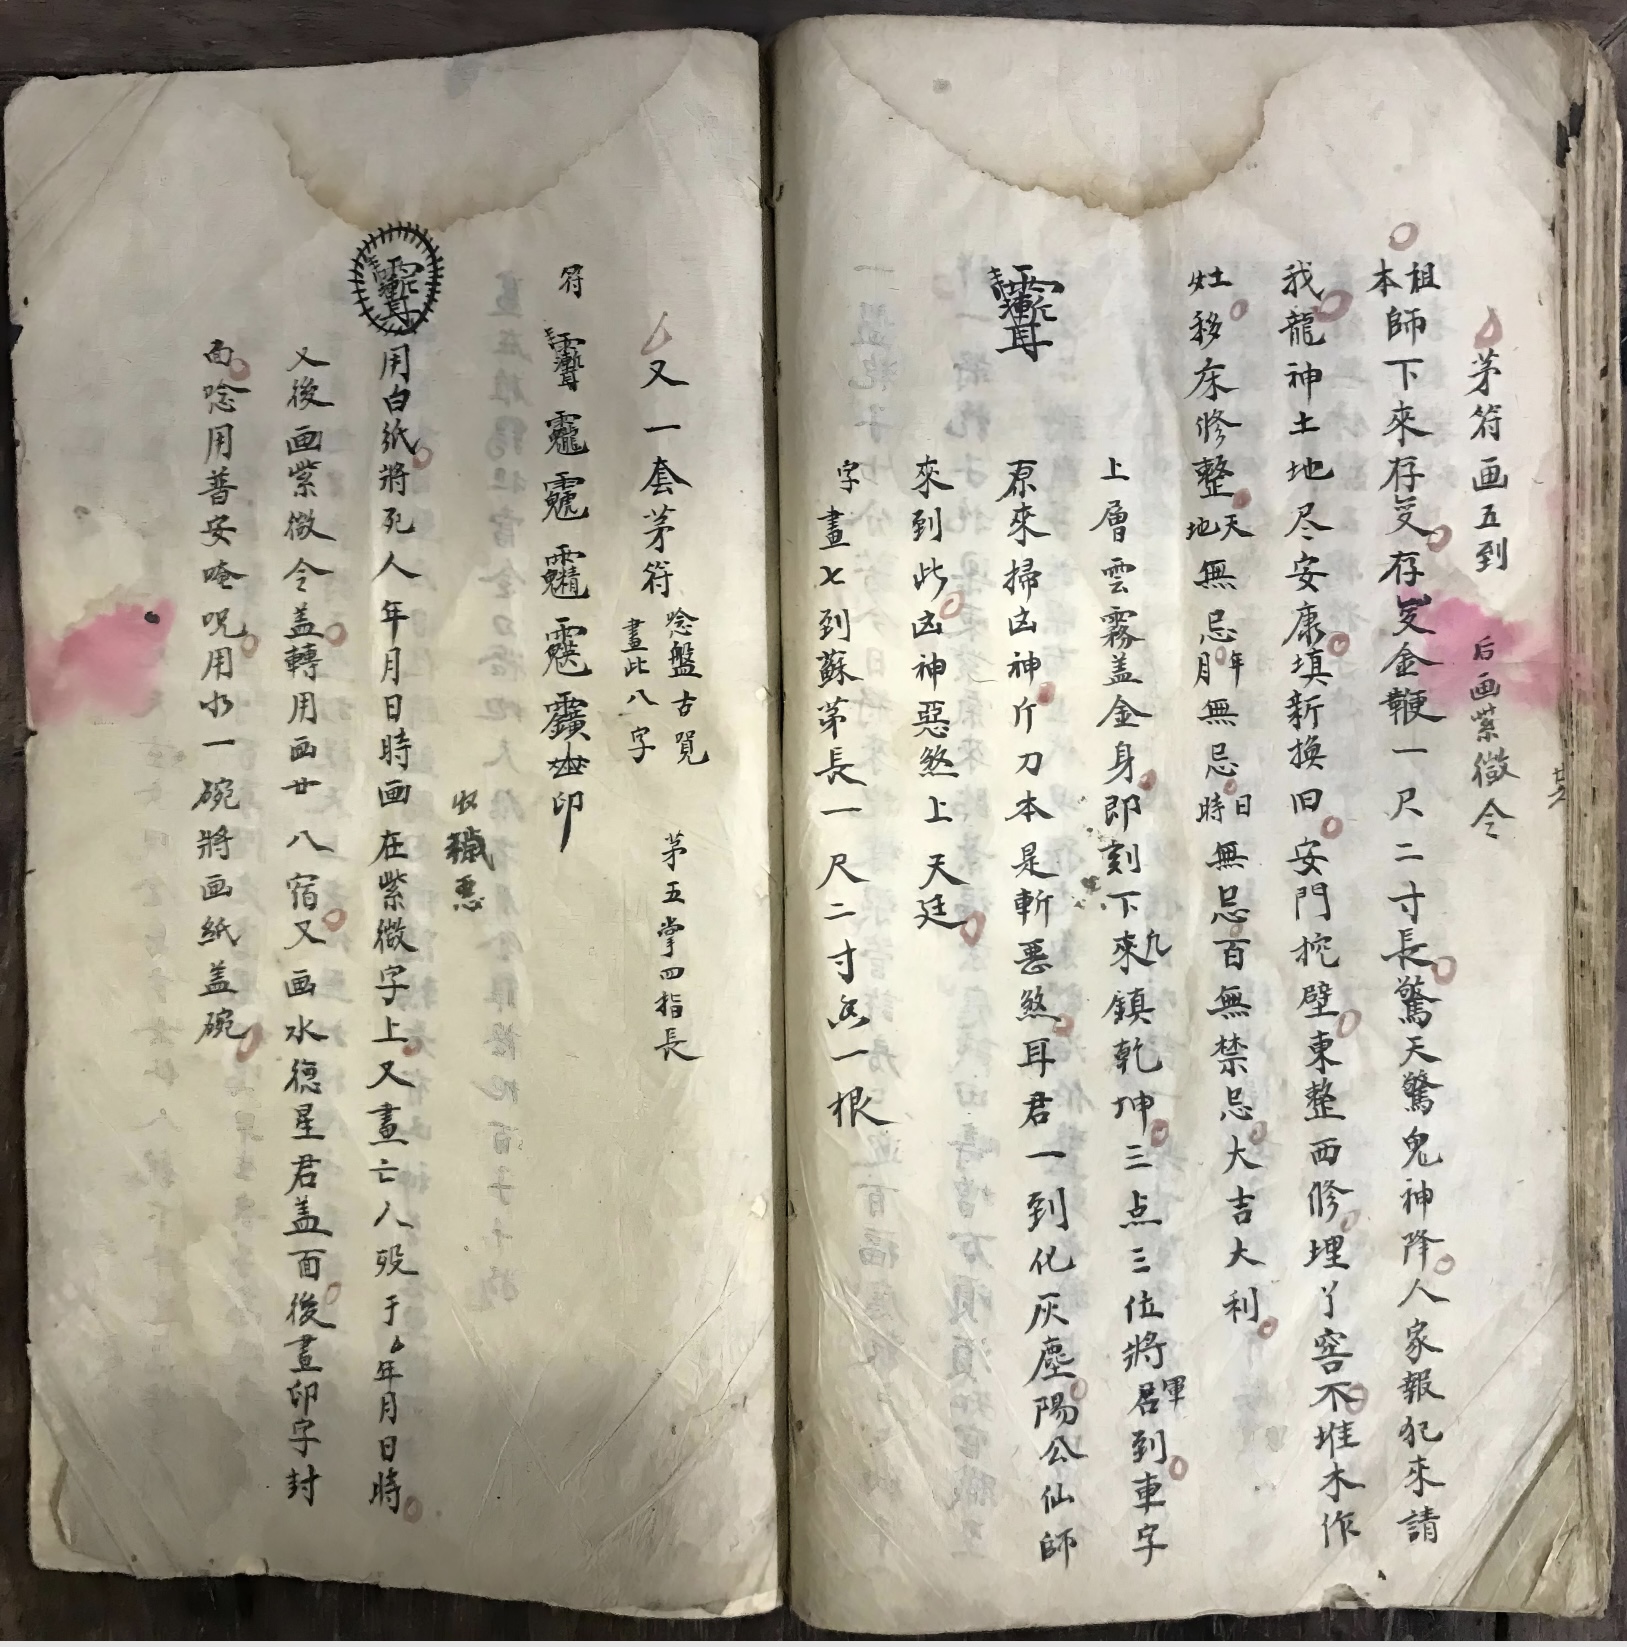 茅符画五到 后画紫微令
祖本師下來存㚆存㚆金鞭一尺二寸長驚天驚鬼神降人家報犯來請
我龍神土地尽安康填新換旧安門挖壁東整西修埋丫窖不堆木作
灶移床修整天地無忌年月無忌日時無忌百無禁忌大吉大利
上層雲霧盖金身即刻下來九鎮乾坤三点三位將軍君到車字
原來掃凶神斤刀本是斬惡煞耳君一到化灰塵陽公仙師
來到此凶神惡煞上天廷
字畫七到蘇茅長一尺二寸一根
又一套茅符 唸盤古 畫此八字 茅五掌四指長
符 印
收穢惡
用白紙將死人年月日時画在紫微字上又畫亡人歿于年月日時
又後画紫微令盖轉用画廿八宿又画水德星君盖面後畫印字封
面唸用普安唵咒用水一碗將画紙盖碗